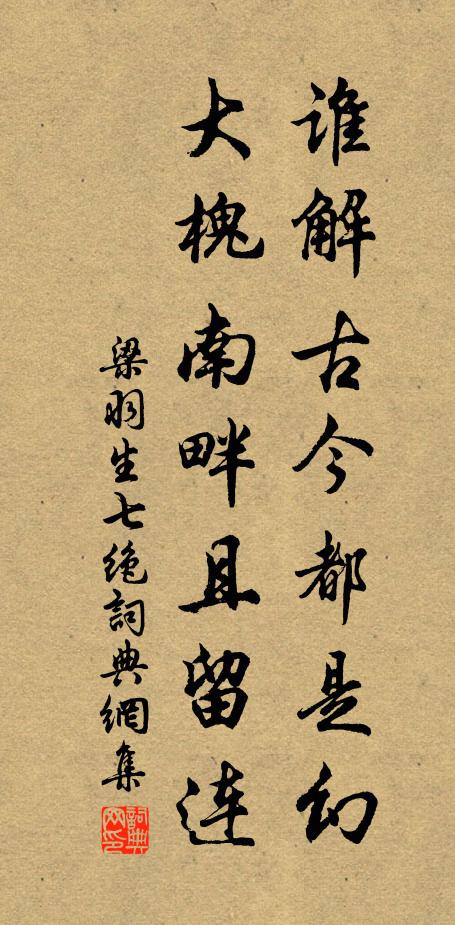 誰解古今都是幻
大槐南畔且留連
梁羽生七絶詞典網集
詞典網印